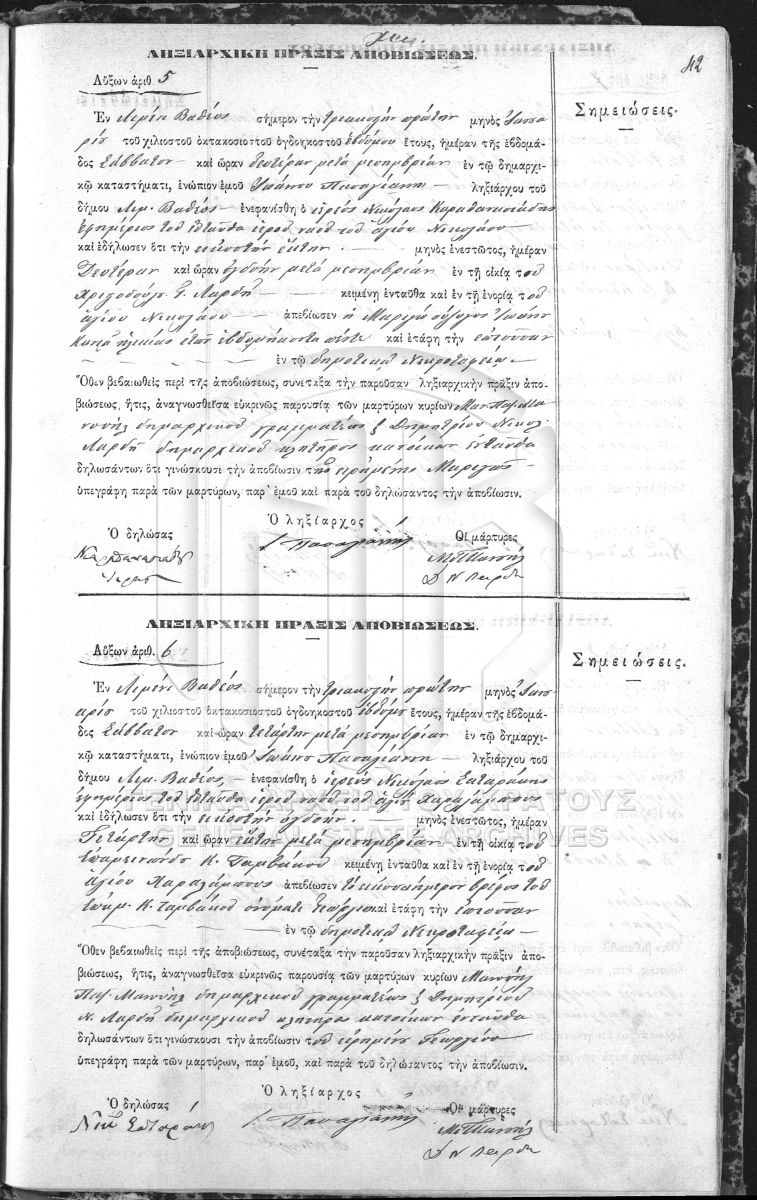 42
ΛΗΞΙΑΡΧΙΚΗ ΠΡΑΞΙΣ ΑΠΟΒΙΩΣΕΩΣ.
Αὔξων ἀριθ. 5
Σημειώσεις.
Ἐν Λιμένι Βαθέος σήμερον τὴν τριακοστὴν πρώτην μηνὸς Ἰανουα
ρίου τοῦ χιλιοστοῦ ὀκτακοσιοστοῦ ὀγδοηκοστοῦ ἑβδόμου ἔτους, ἡμέραν τῆς ἑβδομά-
δος Σάββατον καὶ ὥραν δευτέραν μετὰ μεσημβρίαν ἐν τῷ δημαρχι-
κῷ καταστήματι, ἐνώπιον ἐμοῦ Ἰωάννου ληξιάρχου τοῦ
δήμου Λιμ. Βαθέος ἐνεφανίσθη ὁ ἱερεὺς Νικόλαος Καραθανασιάδης
ἐφημέριος τοῦ ἐνταῦθα ἱεροῦ ναοῦ τοῦ ἁγίου Νικολάου
καὶ ἐδήλωσεν ὅτι τὴν εἰκοστὴν ἕκτην μηνὸς ἐνεστῶτος, ἡμέραν
Δευτέραν καὶ ὥραν ὀγδόην μετὰ μεσημβρίαν ἐν τῇ οἰκίᾳ τοῦ
Χριστοδούλου Γ. Λαρδῆ κειμένῃ ἐνταῦθα καὶ ἐν τῇ ἐνορίᾳ τοῦ
ἁγίου Νικολάου ἀπεβίωσεν ἡ Μαριγὼ σύζυγος Ἰωάννου
ἡλικίας ἐτῶν ἑβδομήκοντα πέντε καὶ ἐτάφη τὴν ἐπιοῦσαν
ἐν τῷ δημοτικῷ Νεκροταφείῳ
Ὅθεν βεβαιωθεὶς περὶ τῆς ἀποβιώσεως, συνέταξα τὴν παροῦσαν ληξιαρχικὴν πρᾶξιν ἀπο-
βιώσεως, ἥτις, ἀναγνωσθεῖσα εὐκρινῶς παρουσίᾳ τῶν μαρτύρων κυρίων Μαν. Παπ. Μα
νουὴλ δημαρχικοῦ γραμματέως ξ Δημητρίου Νικολ.
Λαρδῆ δημαρχικοῦ κλητῆρος κατοίκων ἐνταῦθα
δηλωσάντων ὅτι γινώσκουσι τὴν ἀποβίωσιν τῆς εἰρημένης Μαριγῶς
ὑπεγράφη παρὰ τῶν μαρτύρων, παρ' ἐμοῦ καὶ παρὰ τοῦ δηλώσαντος τὴν ἀποβίωσιν.
Ὁ δηλώσας
Ὁ ληξίαρχος
Οἱ μάρτυρες
Δ Ν Λαρδῆ
ΛΗΞΙΑΡΧΙΚΗ ΠΡΑΞΙΣ ΑΠΟΒΙΩΣΕΩΣ.
Αὔξων ἀριθ. 6
Σημειώσεις.
Ἐν Λιμένι Βαθέος σήμερον τὴν τριακοστὴν πρώτην μηνὸς Ἰανου
αρίου τοῦ χιλιοστοῦ ὀκτακοσιοστοῦ ὀγδοηκοστοῦ ἑβδόμου ἔτους, ἡμέραν τῆς ἑβδομά-
δος Σάββατον καὶ ὥραν τετάρτην μετὰ μεσημβρίαν ἐν τῷ δημαρχι-
κῷ καταστήματι, ἐνώπιον ἐμοῦ Ἰωάννου ληξιάρχου τοῦ
δήμου Λιμ. Βαθέος, ἐνεφανίσθη ὁ ἱερεὺς Νικόλαος
ἐφημέριος τοῦ ἐνταῦθα ἱεροῦ ναοῦ τοῦ ἁγίου Χαραλάμπους
καὶ ἐδήλωσεν ὅτι τὴν εἰκοστὴν ὀγδόην μηνὸς ἐνεστῶτος, ἡμέραν
Τετάρτην καὶ ὥραν ἕκτην μετὰ μεσημβρίαν ἐν τῇ οἰκίᾳ τοῦ
Ἐπαμεινώνδου Κ. Ταμβάκου κειμένῃ ἐνταῦθα καὶ ἐν τῇ ἐνορίᾳ τοῦ
ἁγίου Χαραλάμπους ἀπεβίωσεν τὸ εἰκοσαήμερον βρέφος τοῦ
Ἐπαμ. Κ. Ταμβάκου ὀνόματι Γεώργιος καὶ ἐτάφη τὴν ἐπιοῦσαν
ἐν τῷ δημοτικῷ Νεκροταφείῳ
Ὅθεν βεβαιωθεὶς περὶ τῆς ἀποβιώσεως, συνέταξα τὴν παροῦσαν ληξιαρχικὴν πρᾶξιν ἀπο-
βιώσεως, ἥτις, ἀναγνωσθεῖσα εὐκρινῶς παρουσίᾳ τῶν μαρτύρων κυρίων Μανουὴλ
Παπ. Μανουὴλ δημαρχικοῦ γραμματέως ξ Δημητρίου
Ν. Λαρδῆ δημαρχικοῦ κλητῆρος κατοίκων ἐνταῦθα
δηλωσάντων ὅτι γινώσκουσι τὴν ἀποβίωσιν τοῦ εἰρημένου Γεωργίου
ὑπεγράφη παρὰ τῶν μαρτύρων, παρ' ἐμοῦ, καὶ παρὰ τοῦ δηλώσαντος τὴν ἀποβίωσιν.
Ὁ δηλώσας
Ὁ ληξίαρχος
Οἱ μάρτυρες
Δ Ν Λαρδῆ
ΓΕΝΙΚΑ ΑΡΧΕΙΑ ΤΟΥ ΚΡΑΤΟΥΣ
GENERAL STATE ARCHIVES